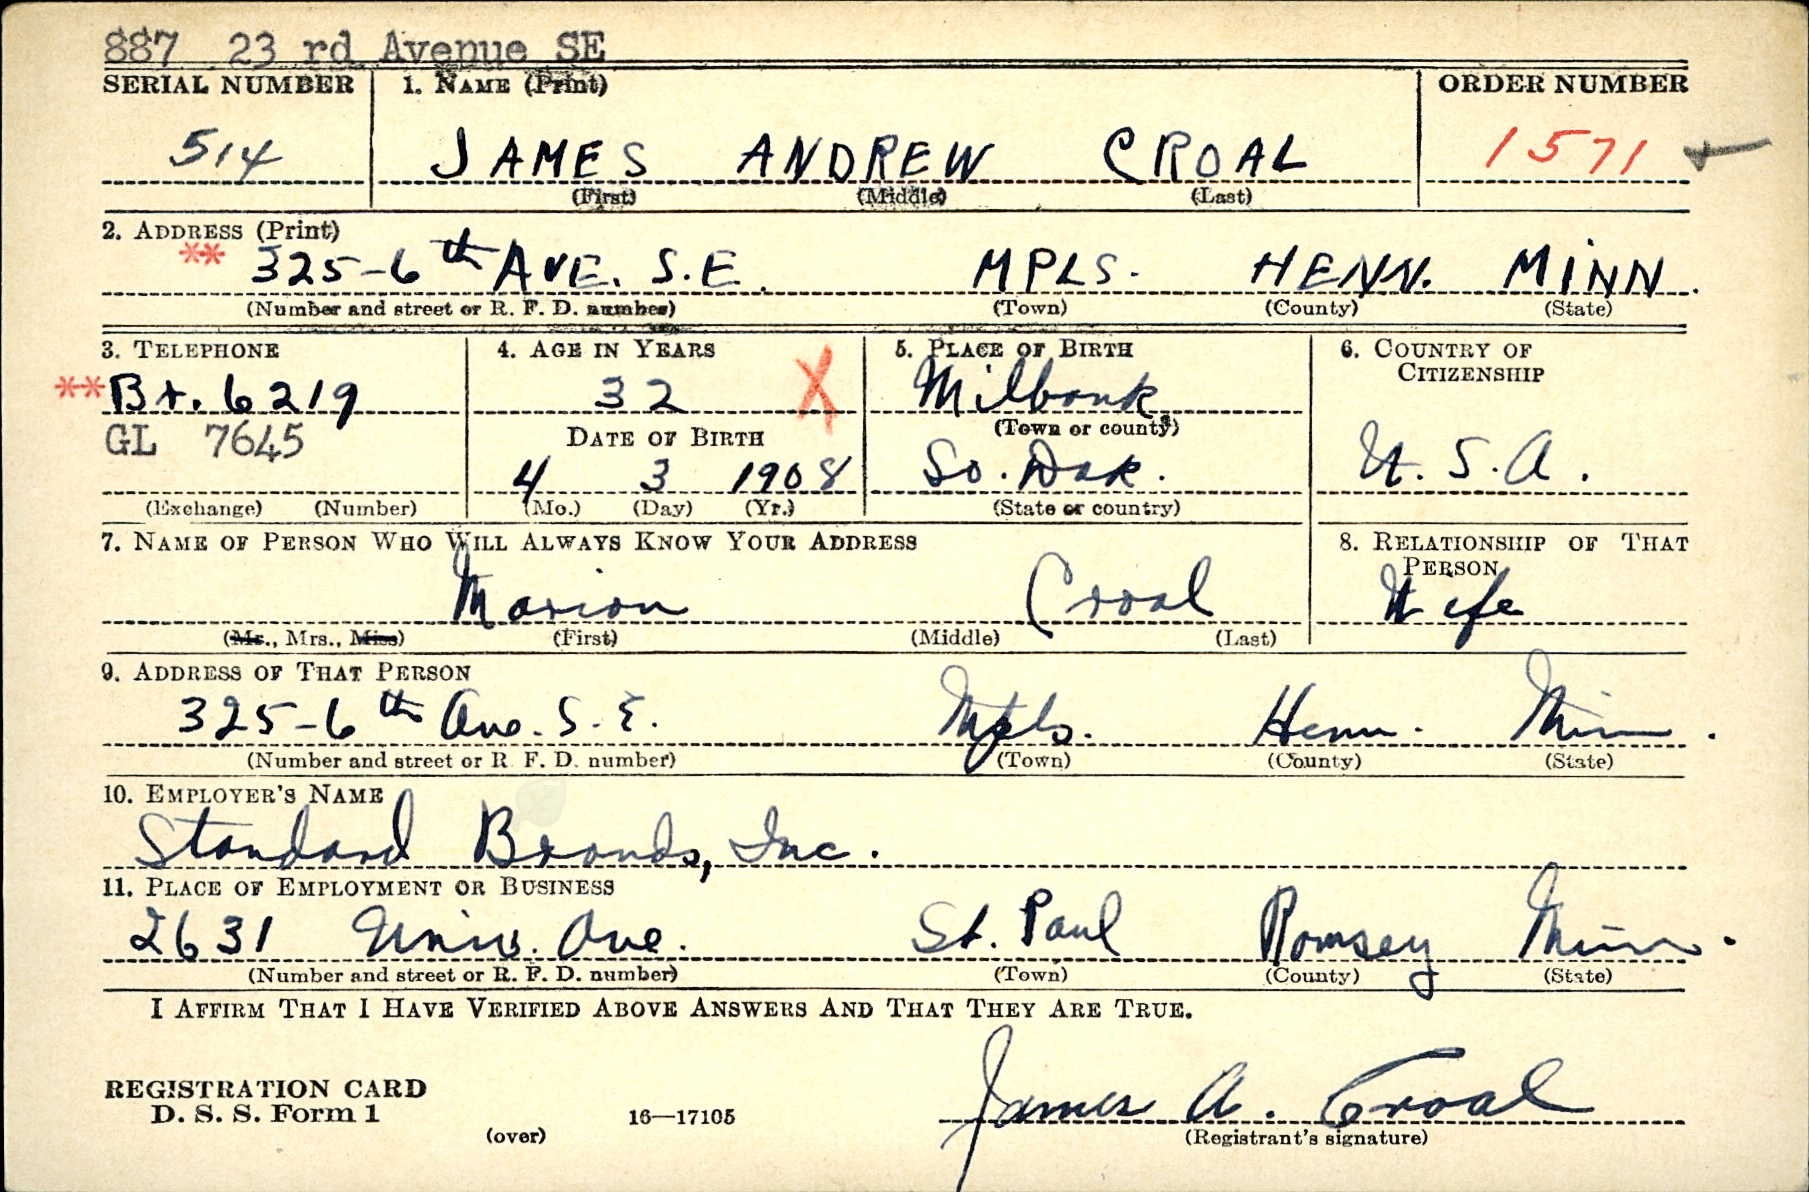 887 23 rd Avenue SE
SERIAL NUMBER 1. NAME (Print) ORDER NUMBER
514 JAMES ANDREW CROAL 1571
(First) (Middle) (Last)
2. ADDRESS (Print)
** 325-6th AVE. S.E. MPLS. HENN. MINN.
(Number and street or R. F. D. number) (Town) (County) (State)
3. TELEPHONE 4. AGE IN YEARS 5. PLACE OF BIRTH 6. COUNTRY OF CITIZENSHIP
** Br. 6219 32 X Milbank,
(Town or county)
GL 7645 DATE OF BIRTH
4 3 1908 So. Dak. U.S.A.
(Exchange) (Number) (Mo.) (Day) (Yr.) (State or country)
7. NAME OF PERSON WHO WILL ALWAYS KNOW YOUR ADDRESS 8. RELATIONSHIP OF THAT PERSON
Marion Croal Wife
(Mr., Mrs., Miss) (First) (Middle) (Last)
9. ADDRESS OF THAT PERSON
325-6th Ave. S.E. Mpls. Henn. Minn.
(Number and street or R. F. D. number) (Town) (County) (State)
10. EMPLOYER'S NAME
Standard Brands, Inc.
11. PLACE OF EMPLOYMENT OR BUSINESS
2631 Univ. Ave. St. Paul Ramsey Minn.
(Number and street or R. F. D. number) (Town) (County) (State)
I AFFIRM THAT I HAVE VERIFIED ABOVE ANSWERS AND THAT THEY ARE TRUE.
James A. Croal
REGISTRATION CARD
D. S. S. Form 1 16—17105
(over) (Registrant's signature)